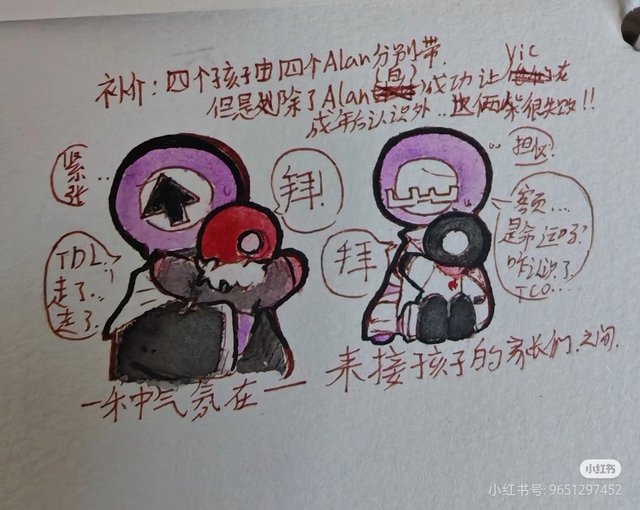 补个:四个孩子由四个Alan分别带.
yic
但是划除了Alan(鬼?)成功让 在
成年后认识外..这俩柴很失败!!
紧
张..
拜!
担心?
TDL.
走了..
走了.
拜
额...
是命运吗?
咋认识了
TCO...
一种中气氛在一 来接孩子的家长们.之间.
小红书
小红书号: 9651297452